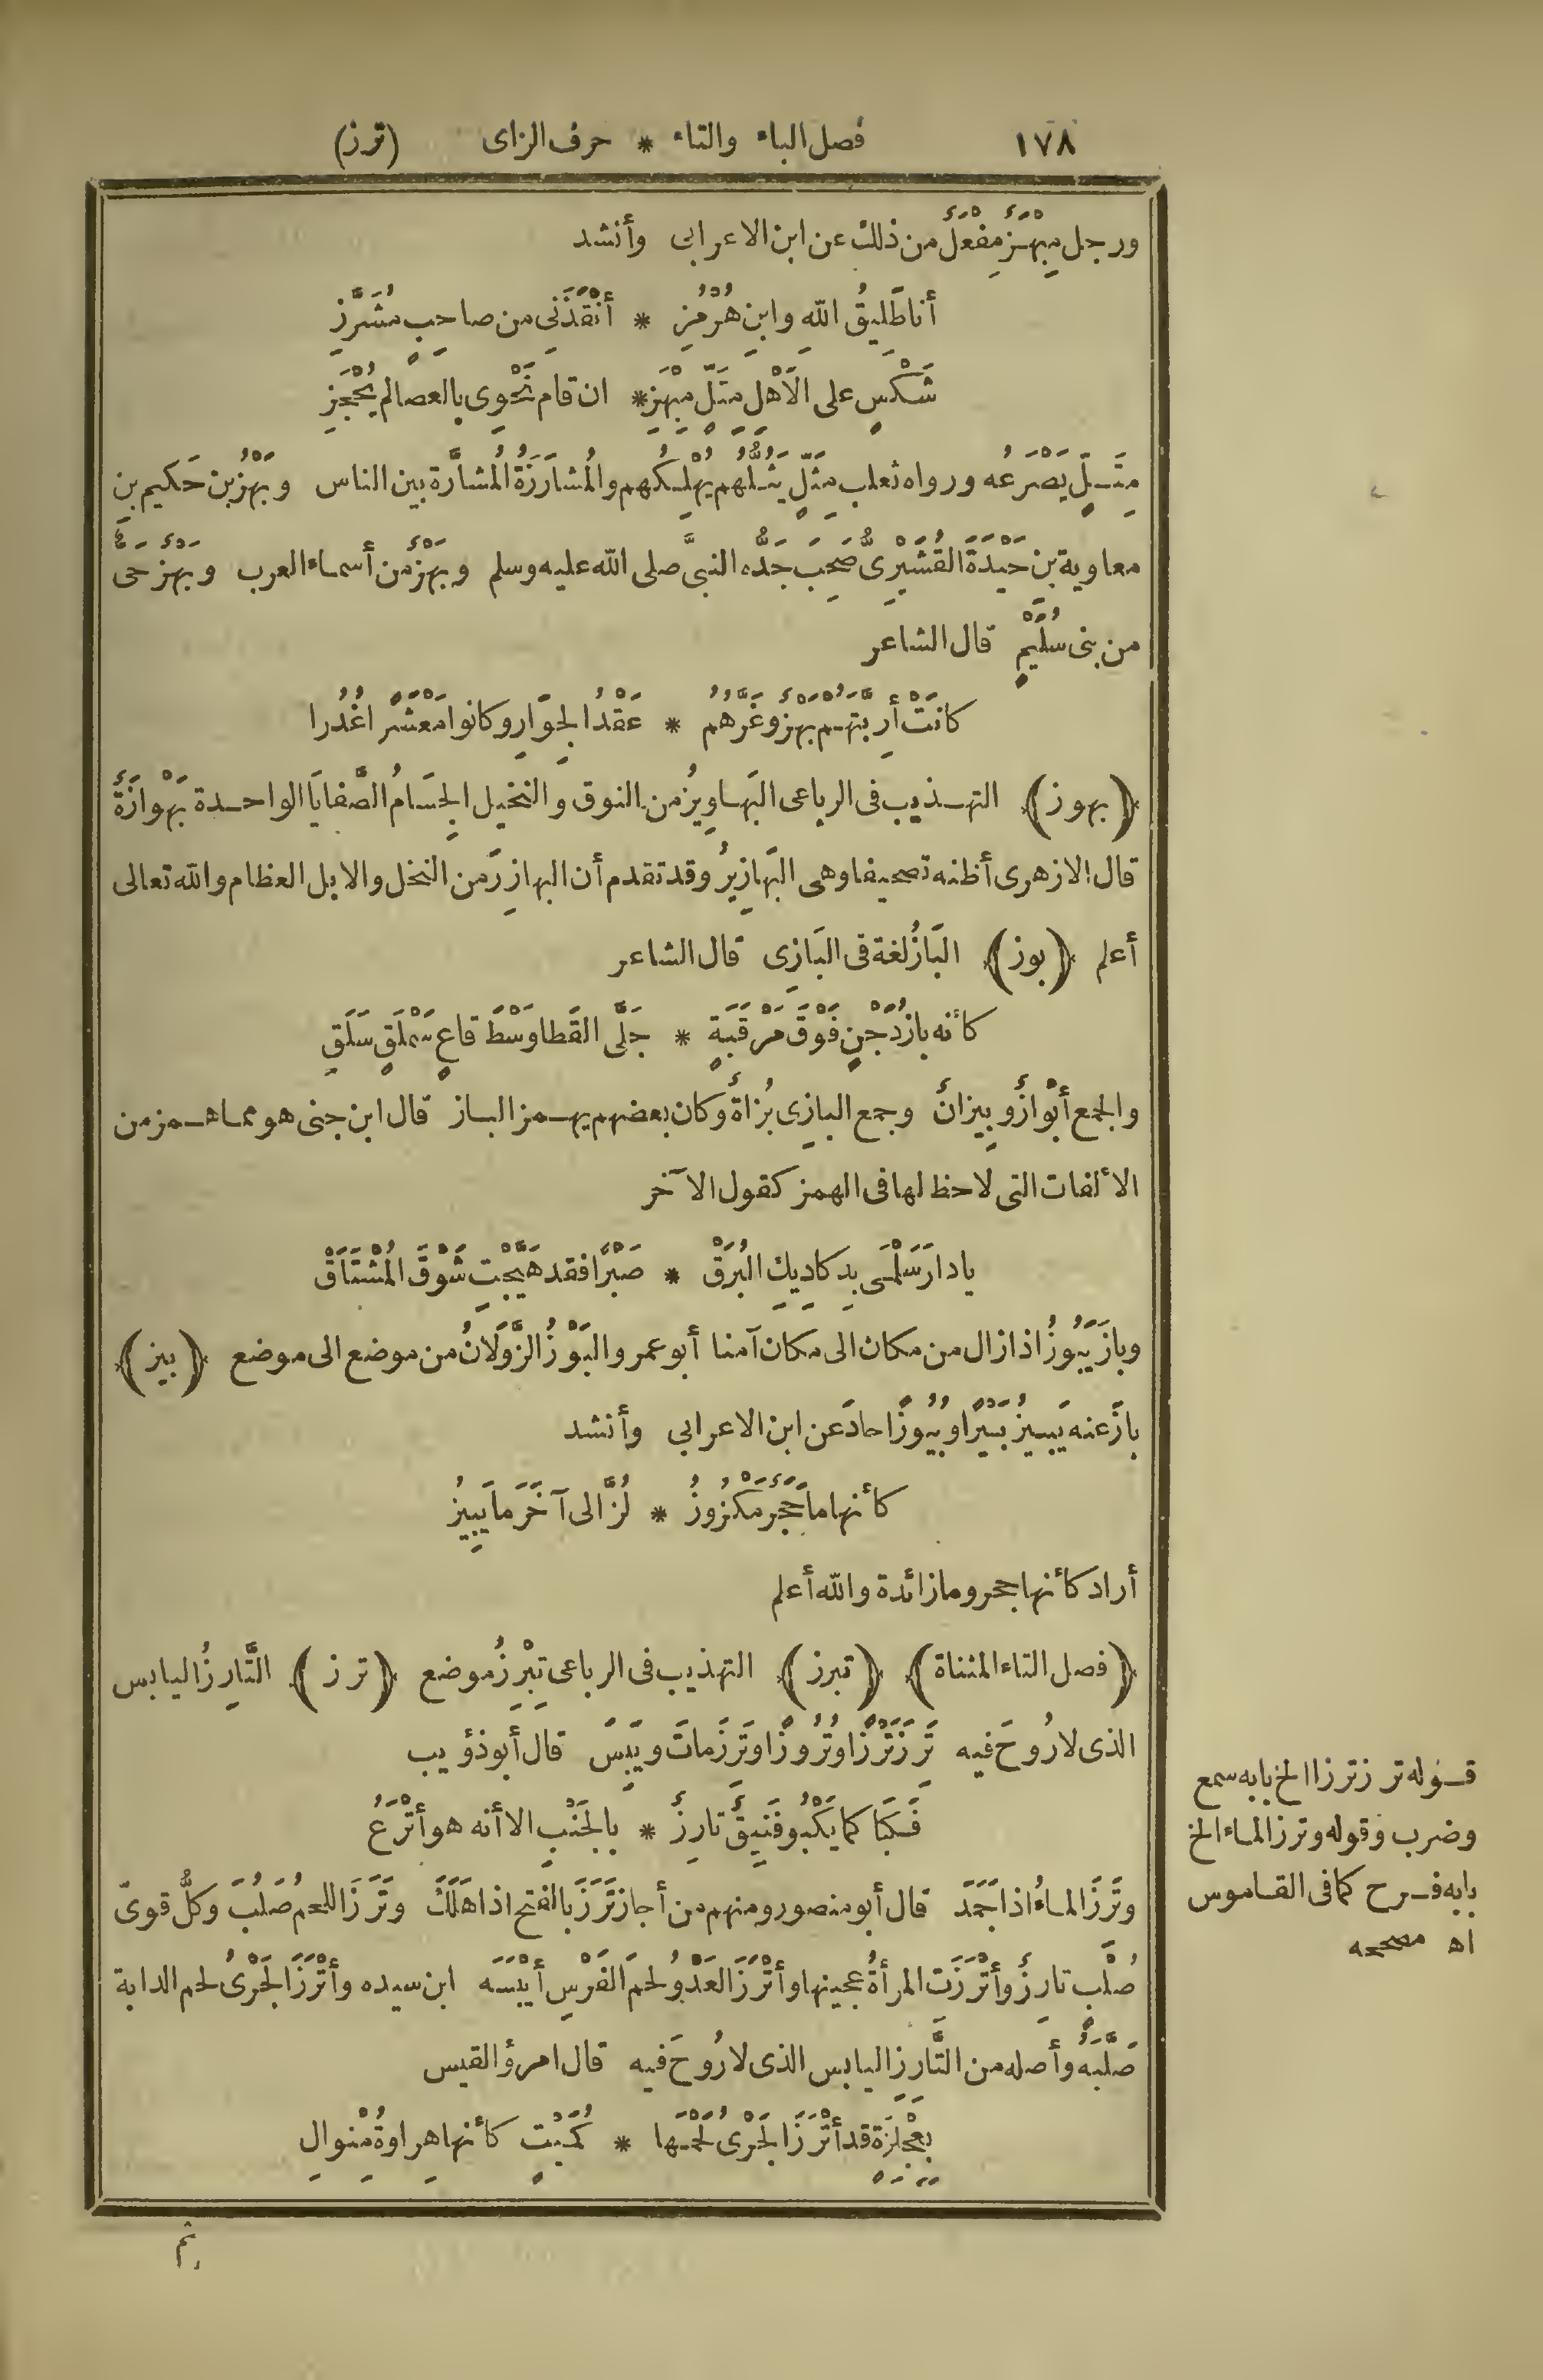 ١٧٨ فصل الباء والتاء * حرف الزاى (ترز)
ورجل مِبْهَزٌ مِفْعَلٌ من ذلك عن ابن الاعرابى وأنشد
أنا طَلِيقُ اللهِ وابنِ هُرْمُزِ * أَنْقَذَنِى من صاحِبٍ مُشَرَّزِ
شَكْسٍ على الاَهْلِ مِتَلٍّ مِبْهَزِ * ان قام نَحْوِى بالعصا لم يُحْجَزِ
مِتَلٌّ يَصْرَعُه ورواه ثعلب مِثَلٍّ يَثُلُّهُم يُهْلِكُهم والمُشارَزَةُ المُشارَّة بين الناس وبَهْزُ بن حَكيم بنِ
معاوية بن حَيْدَةَ القُشَيْرِىُّ صَحِبَ جَدُّه النبىَّ صلى الله عليه وسلم وبَهْزٌ من أسماء العرب وبَهْزٌ حَىٌّ
من بنى سُلَيْمٍ قال الشاعر
كانَتْ أَرِبَّتَهُم بَهْزٌ وغَرَّهُمُ * عَقْدُ الجِوَارِ وكانوا مَعْشَرًا غُدُرا
(بهوز) التهذيب فى الرباعى البَهاوِيزُ من النوق والنخيل الجِسَامُ الصَّفايَا الواحدة بَهْوازَةٌ
قال الازهرى أظنه تصحيفا وهى البَهازِيرُ وقد تقدم أن البهازِرَ من النخل والابل العظام والله تعالى
أعلم (بوز) البَازُ لغة فى البَازِى قال الشاعر
كأنه بازُ دَجْنٍ فَوْقَ مَرْقَبَةٍ * جَلَّى القَطا وَسْطَ قاعٍ سَمْلَقٍ سَلَقِ
والجمع أَبْوازٌ وبِيزانٌ وجمع البازِى بُزاةٌ وكان بعضهم يهمز الباز قال ابن جنى هو مما همز من
الألفات التى لا حظ لها فى الهمز كقول الآخر
يا دارَ سَلْمَى بِدكادِيكِ البُرَقْ * صَبْرًا فقد هَيَّجْتِ شَوْقَ المُشْتَأَقْ
وبازَ يَبُوزُ اذا زال من مكان الى مكان آمنا أبو عمرو البَوْزُ الزَّوَلَانُ من موضع الى موضع (بيز)
بازَ عنه يَبِيزُ بَيْزًا وبُيُوزًا حادَ عن ابن الاعرابى وأنشد
كأنها ما حَجَرٌ مَكْزُوزُ * لُزَّ الى آخَرَ ما يَبِيزُ
أراد كأنها حجر وما زائدة والله أعلم
(فصل التاء المثناة) (تبرز) التهذيب فى الرباعى تِبْرِزُ موضع (ترز) التَّارِزُ اليابس
الذى لا رُوحَ فيه تَرِزَ تَرْزًا وتُرُوزًا وتَرِزَ ماتَ ويَبِسَ قال أبو ذؤيب
فَكَبَا كما يَكْبُو فَنِيقٌ تارِزٌ * بالجَنْبِ الا أنه هو أَتْرَعُ
وتَرَزَ الماءُ اذا جَمَدَ قال أبو منصور ومنهم من أجاز تَرَزَ بالفتح اذا هَلَكَ وتَرَزَ اللحمُ صَلُبَ وكلُّ قوىّ
صُلْبٍ تارِزٌ وأَتْرَزَت المرأةُ عجينها وأَتْرَزَ العَدْوُ لحمَ الفَرَسِ أَيْبَسَه ابن سيده وأَتْرَزَ الجَرْىُ لحم الدابة
صَلَّبَهُ وأصله من التَّارِزِ اليابس الذى لا رُوحَ فيه قال امرؤ القيس
بِعِجْلِزَةٍ قد أَتْرَزَ الجَرْىُ لَحْمَها * كُمَيْتٍ كأنها هِراوةُ مِنْوالِ
ثم
قوله ترز ترزا الخ بابه سمع
وضرب وقوله وترز الماء الخ
بابه فرح كما فى القاموس
اه مصححه